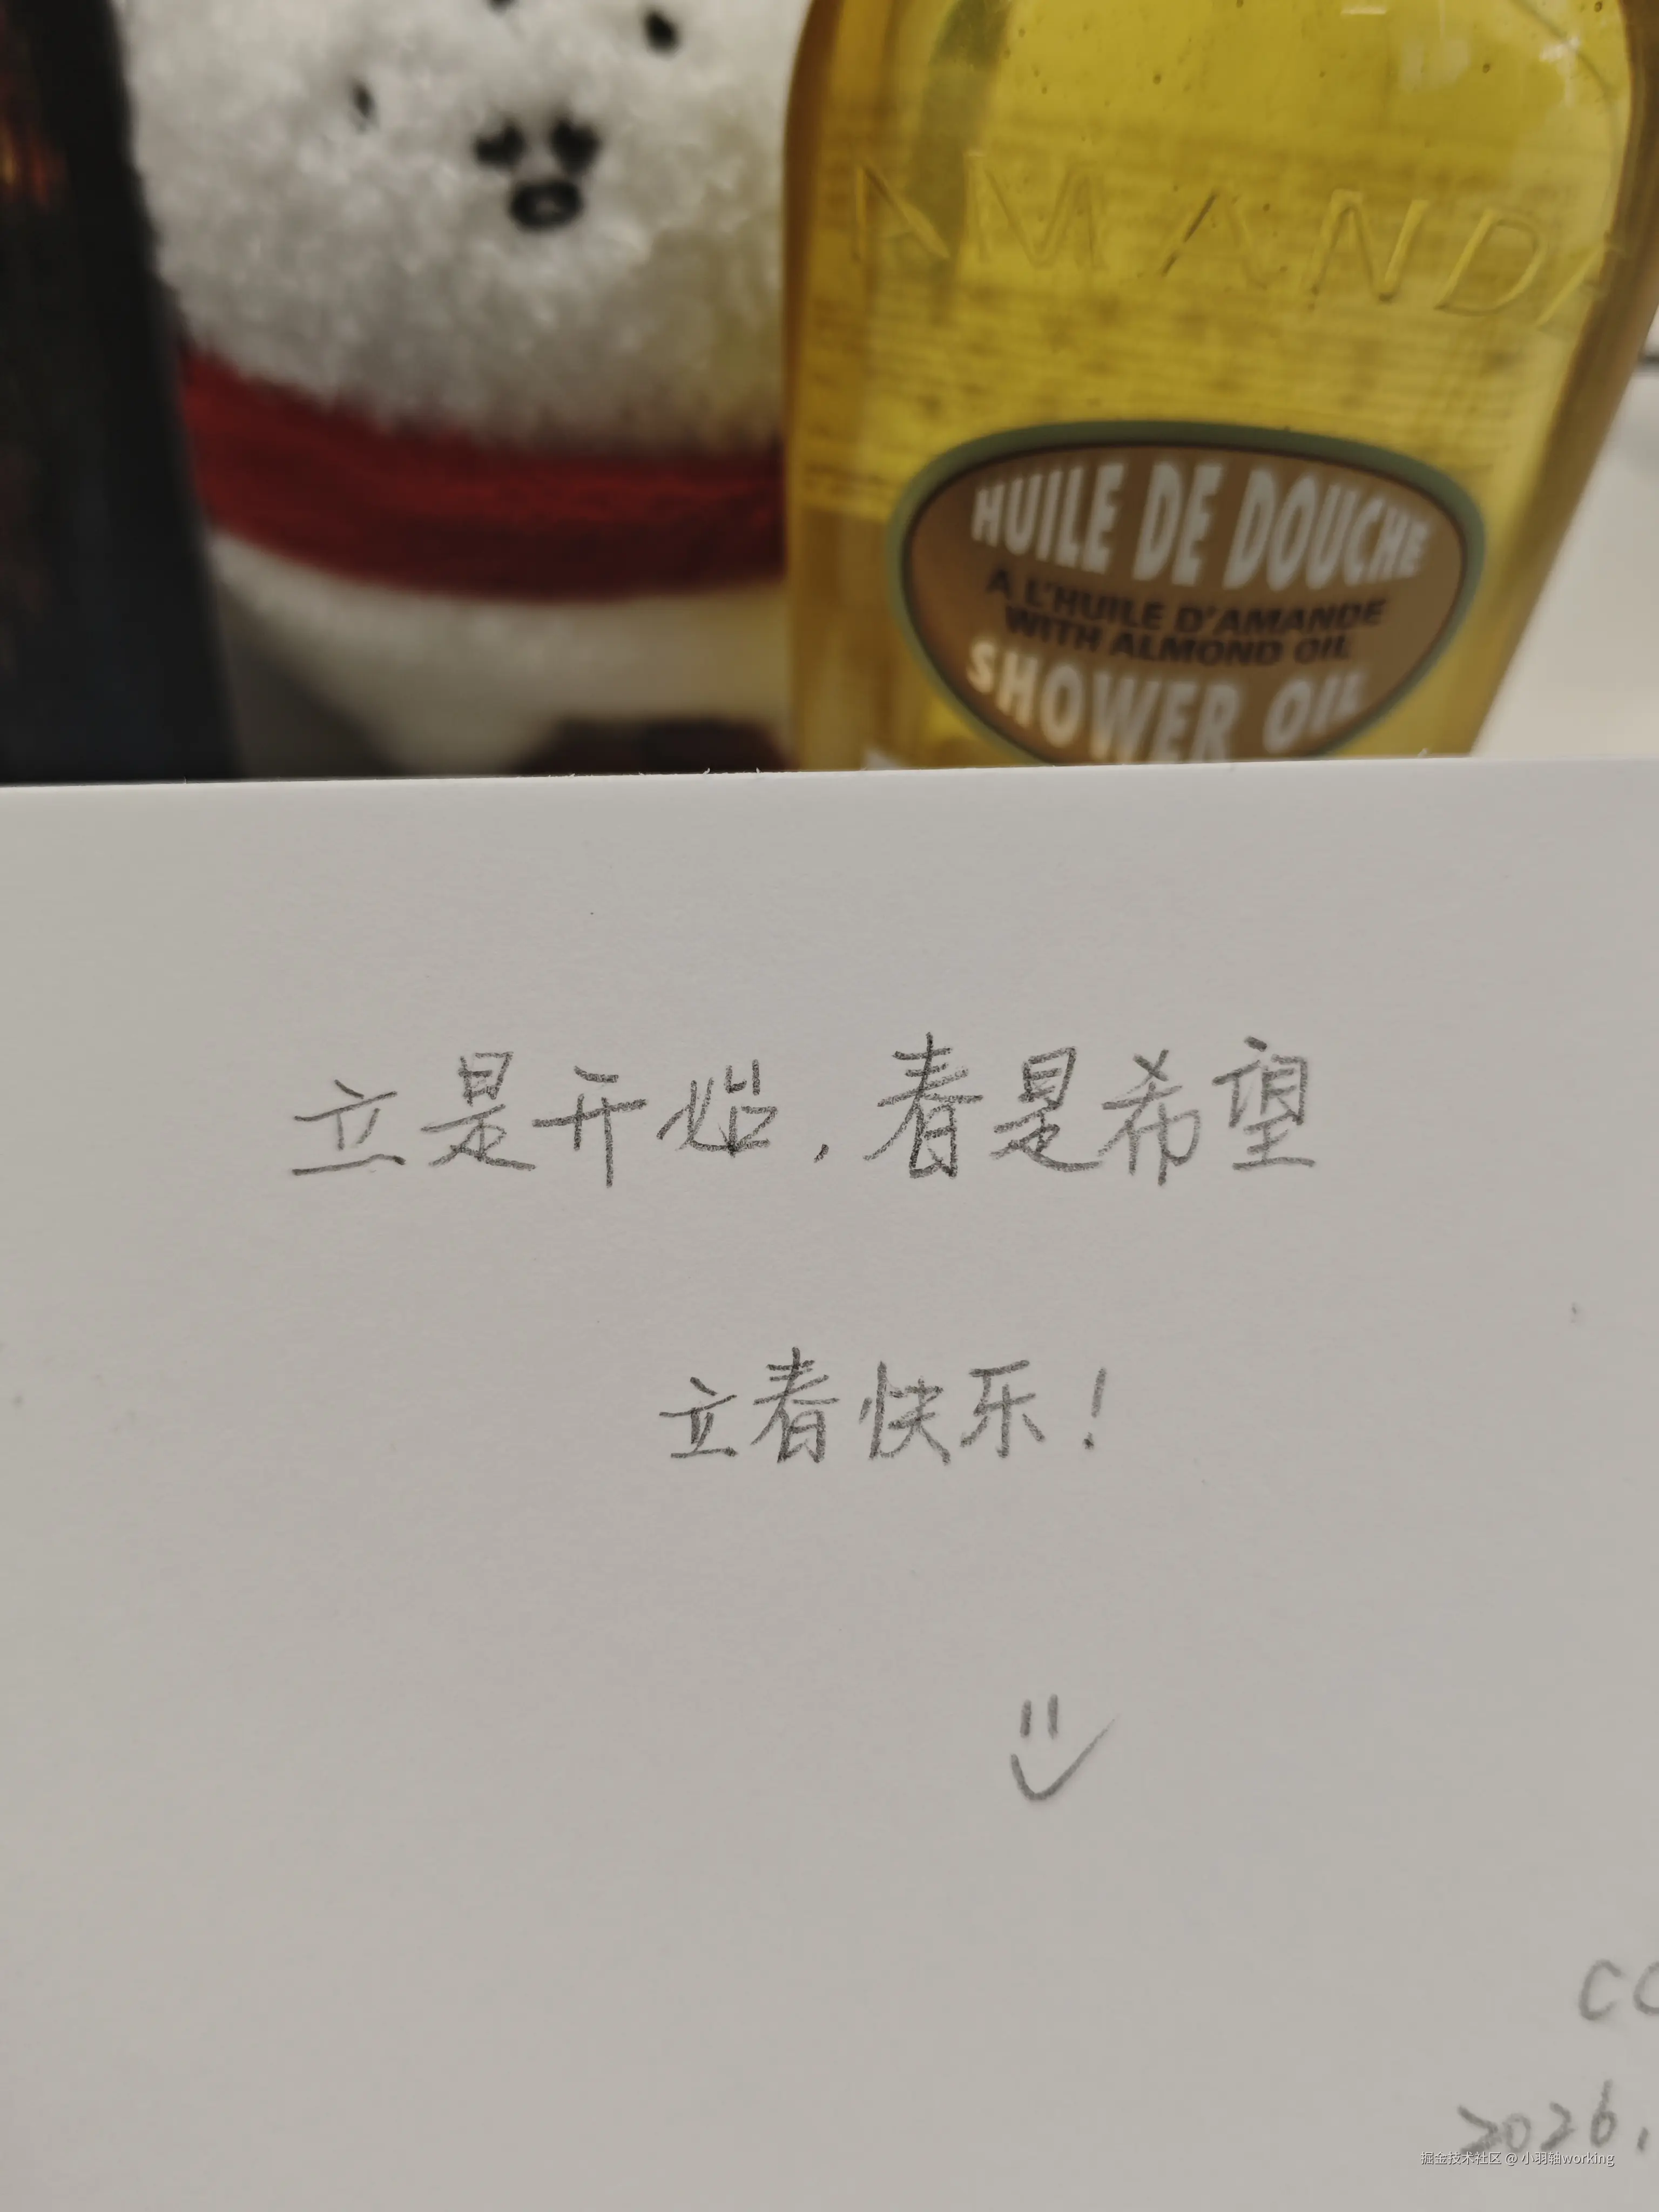 AMANDA
HUILE DE DOUCHE
A L'HUILE D'AMANDE
WITH ALMOND OIL
SHOWER OIL
立是开始,春是希望
立春快乐!
CC
2026.
掘金技术社区 @ 小羽轴working